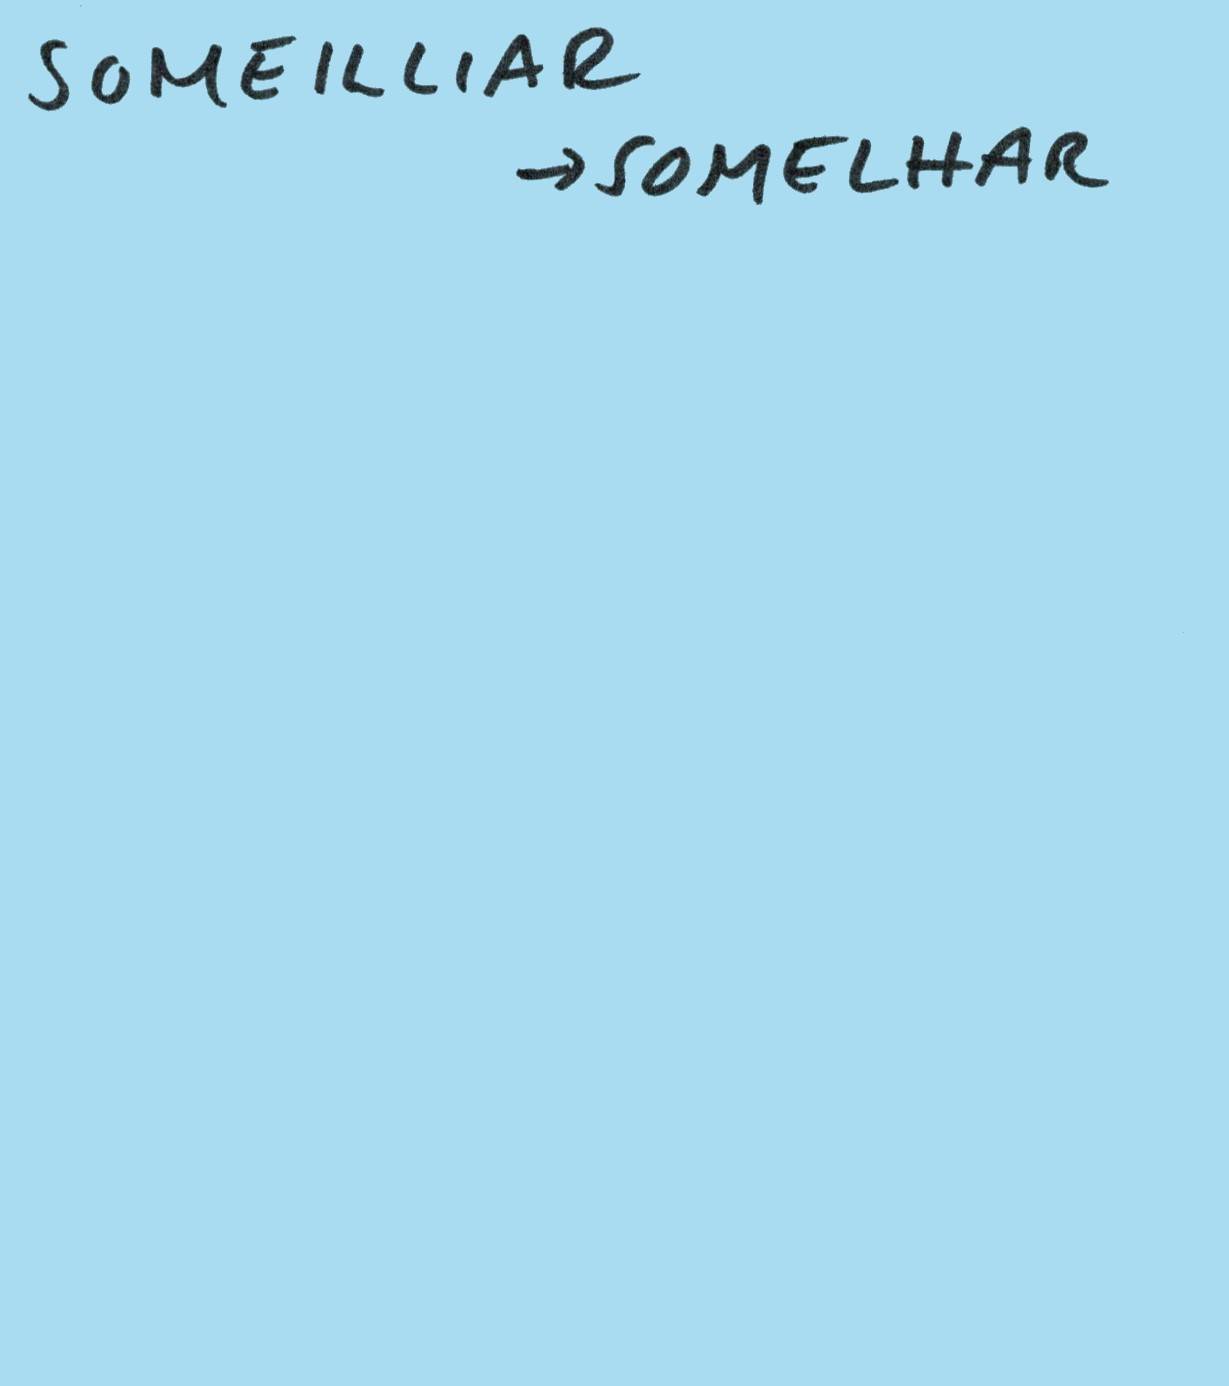 SOMEILLIAR
→SOMELHAR